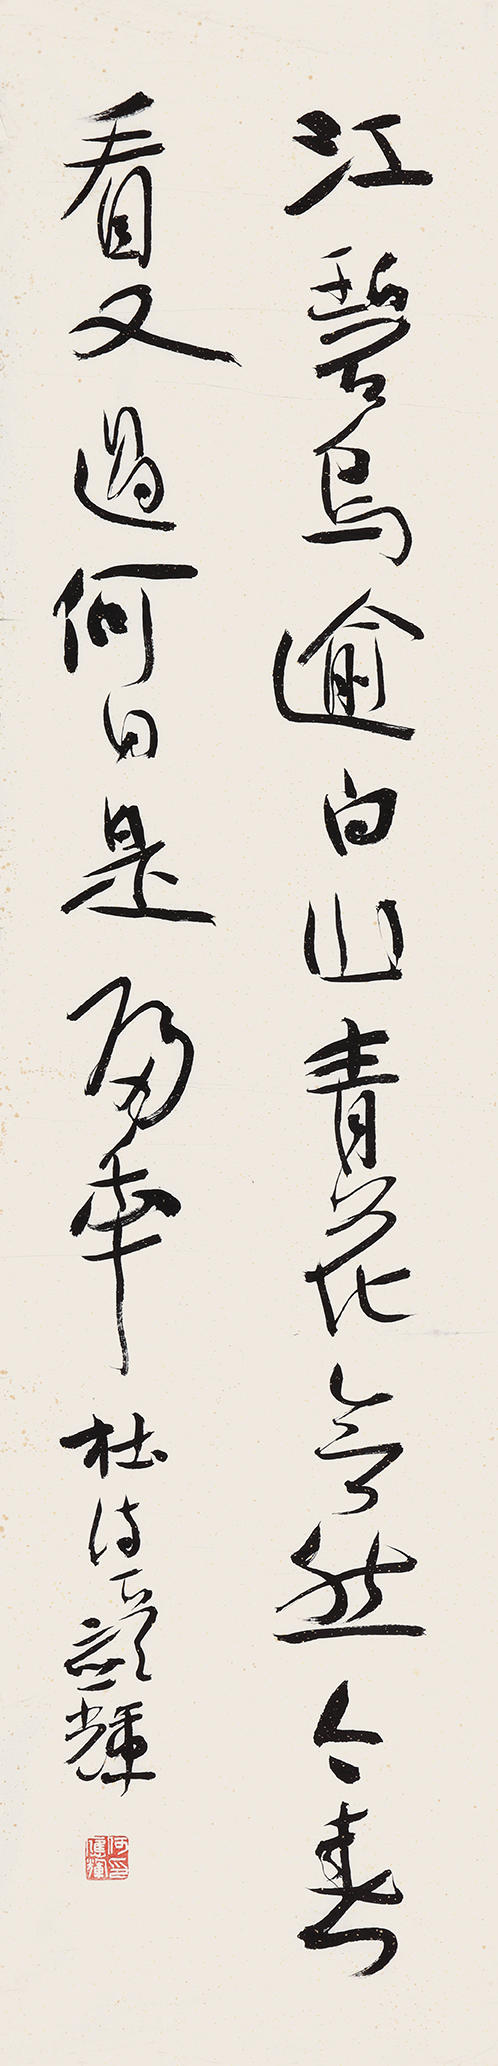 江碧鳥逾白山青花欲然今春
看又過何日是歸年 杜詩 應輝
何應輝印